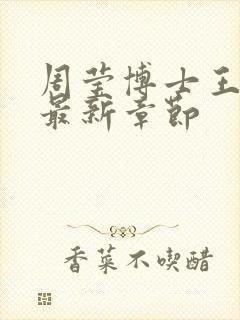 周莹博士王
最新章节
香菜不喫醋